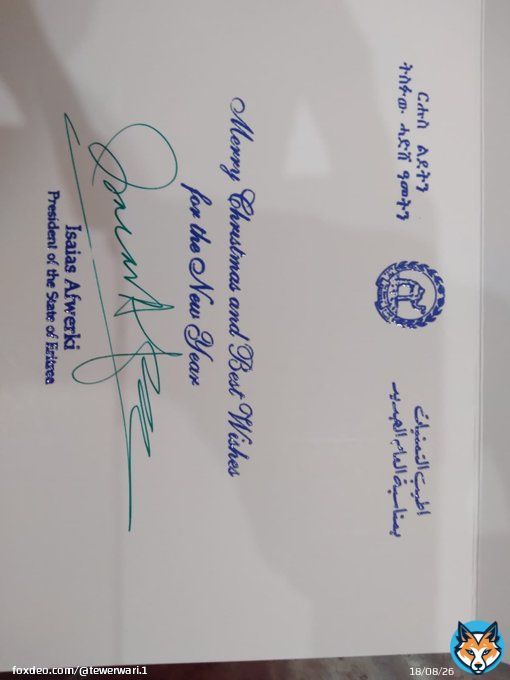 ርሑስ ልደትን
ትስፉው ሓድሽ ዓመትን
اطيب التمنيات
بمناسبة العام الجديد
Merry Christmas and Best Wishes
for the New Year
Isaias Afwerki
President of the State of Eritrea
foxdeo.com/@tewerwari.1
18/08/26